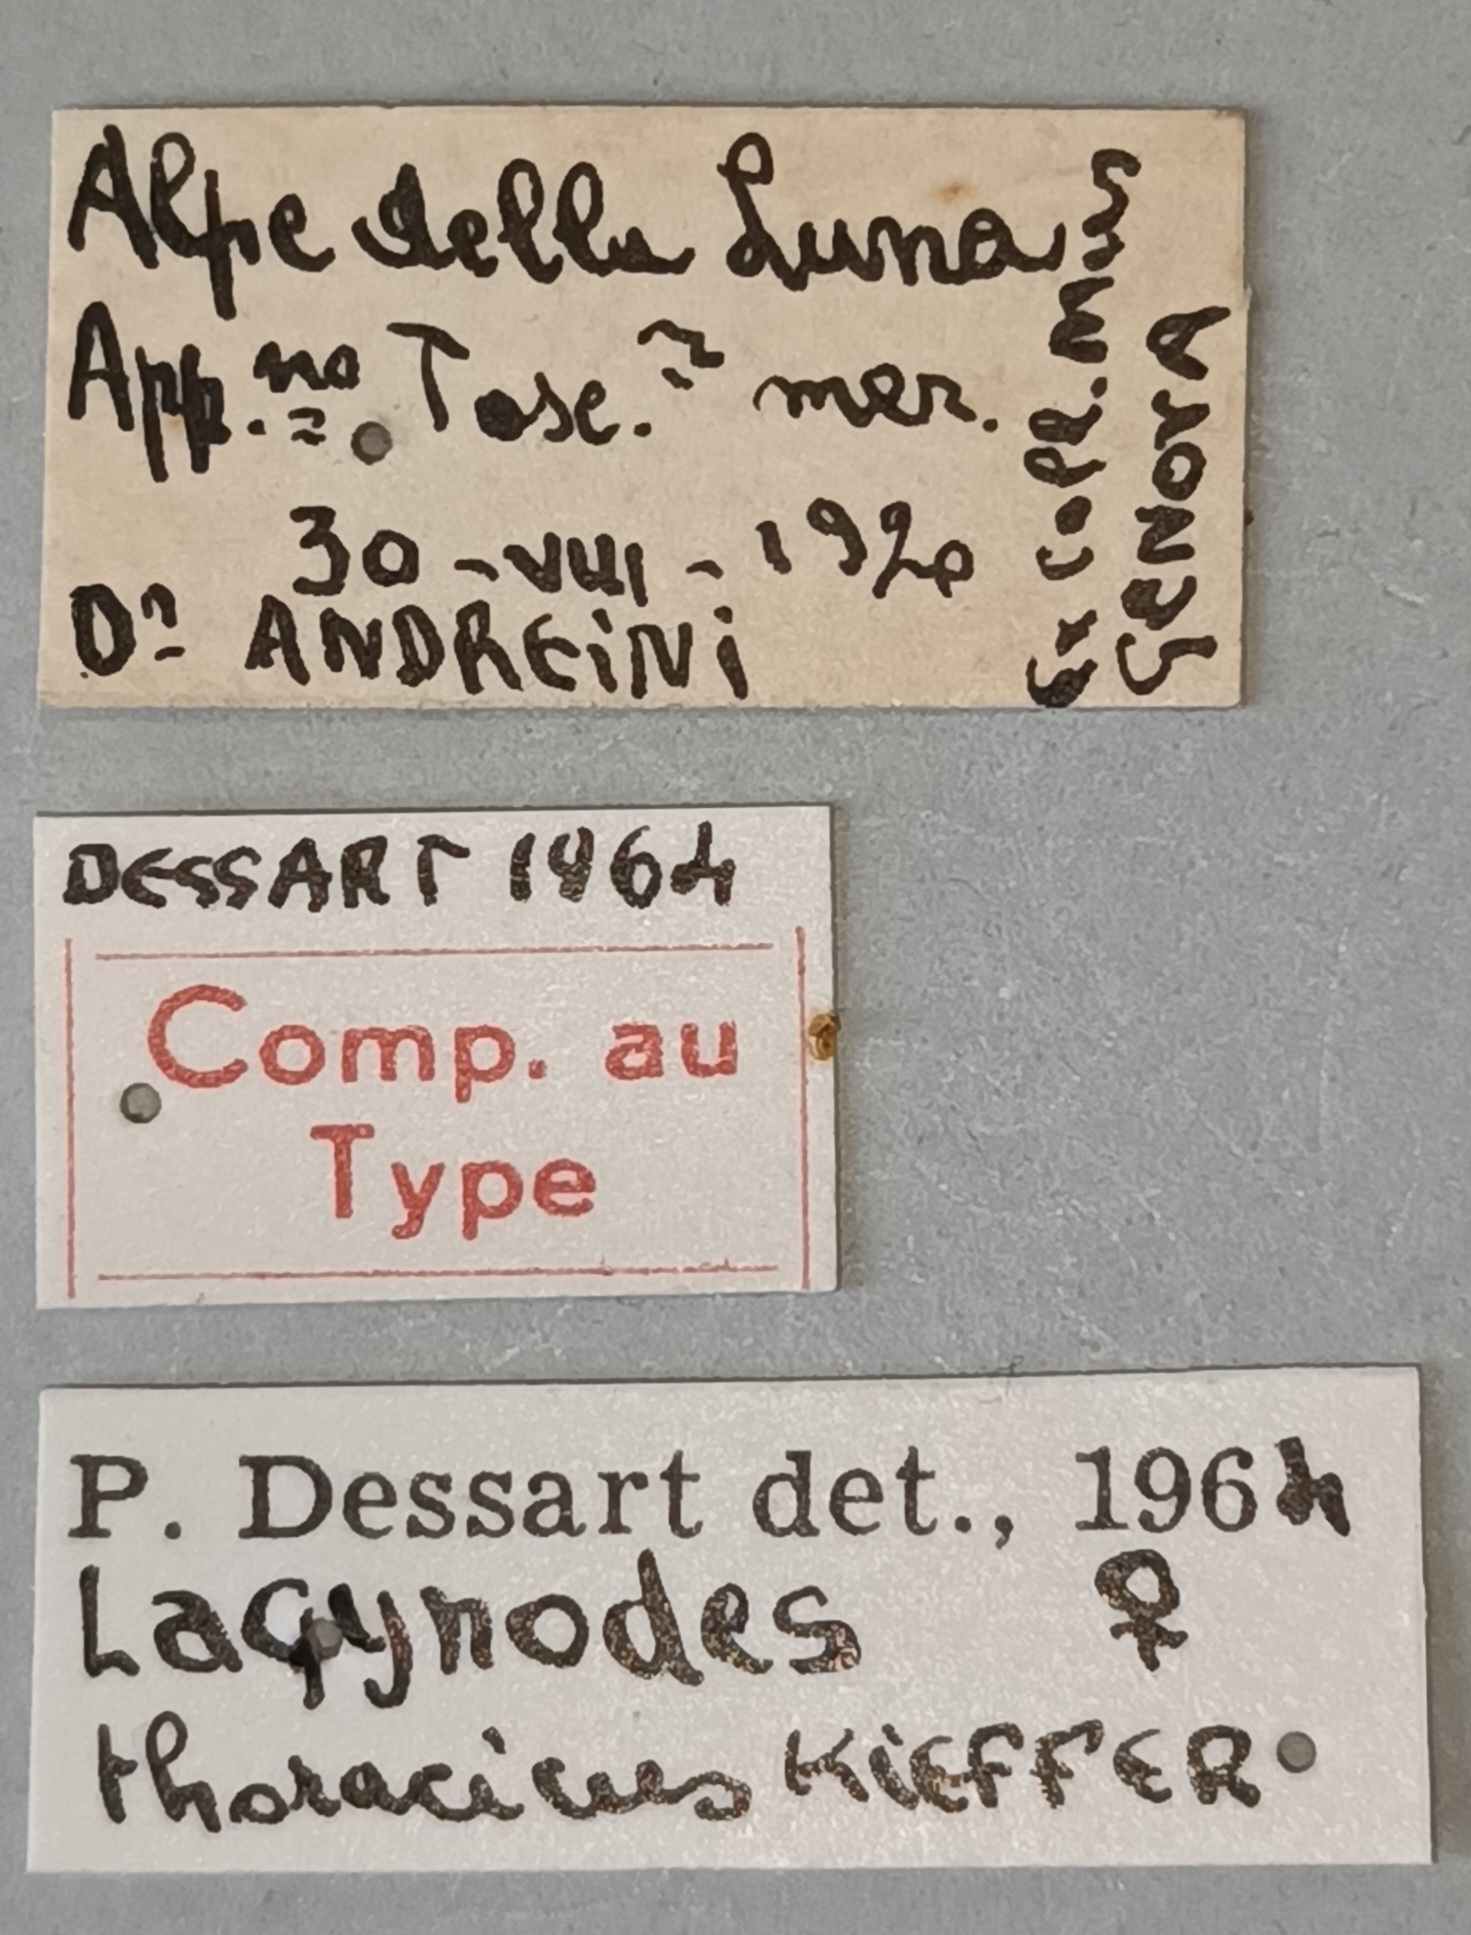 Alpe della Luna
App.no Tosc.o mer.
30 - VIII - 1920
Dr ANDREiNi
Ex COPR. Mus
GENOVA
DESSART 1964
Comp. au
Type
P. Dessart det., 1964
Lagynodes ♀
thoracicus KiEFFER